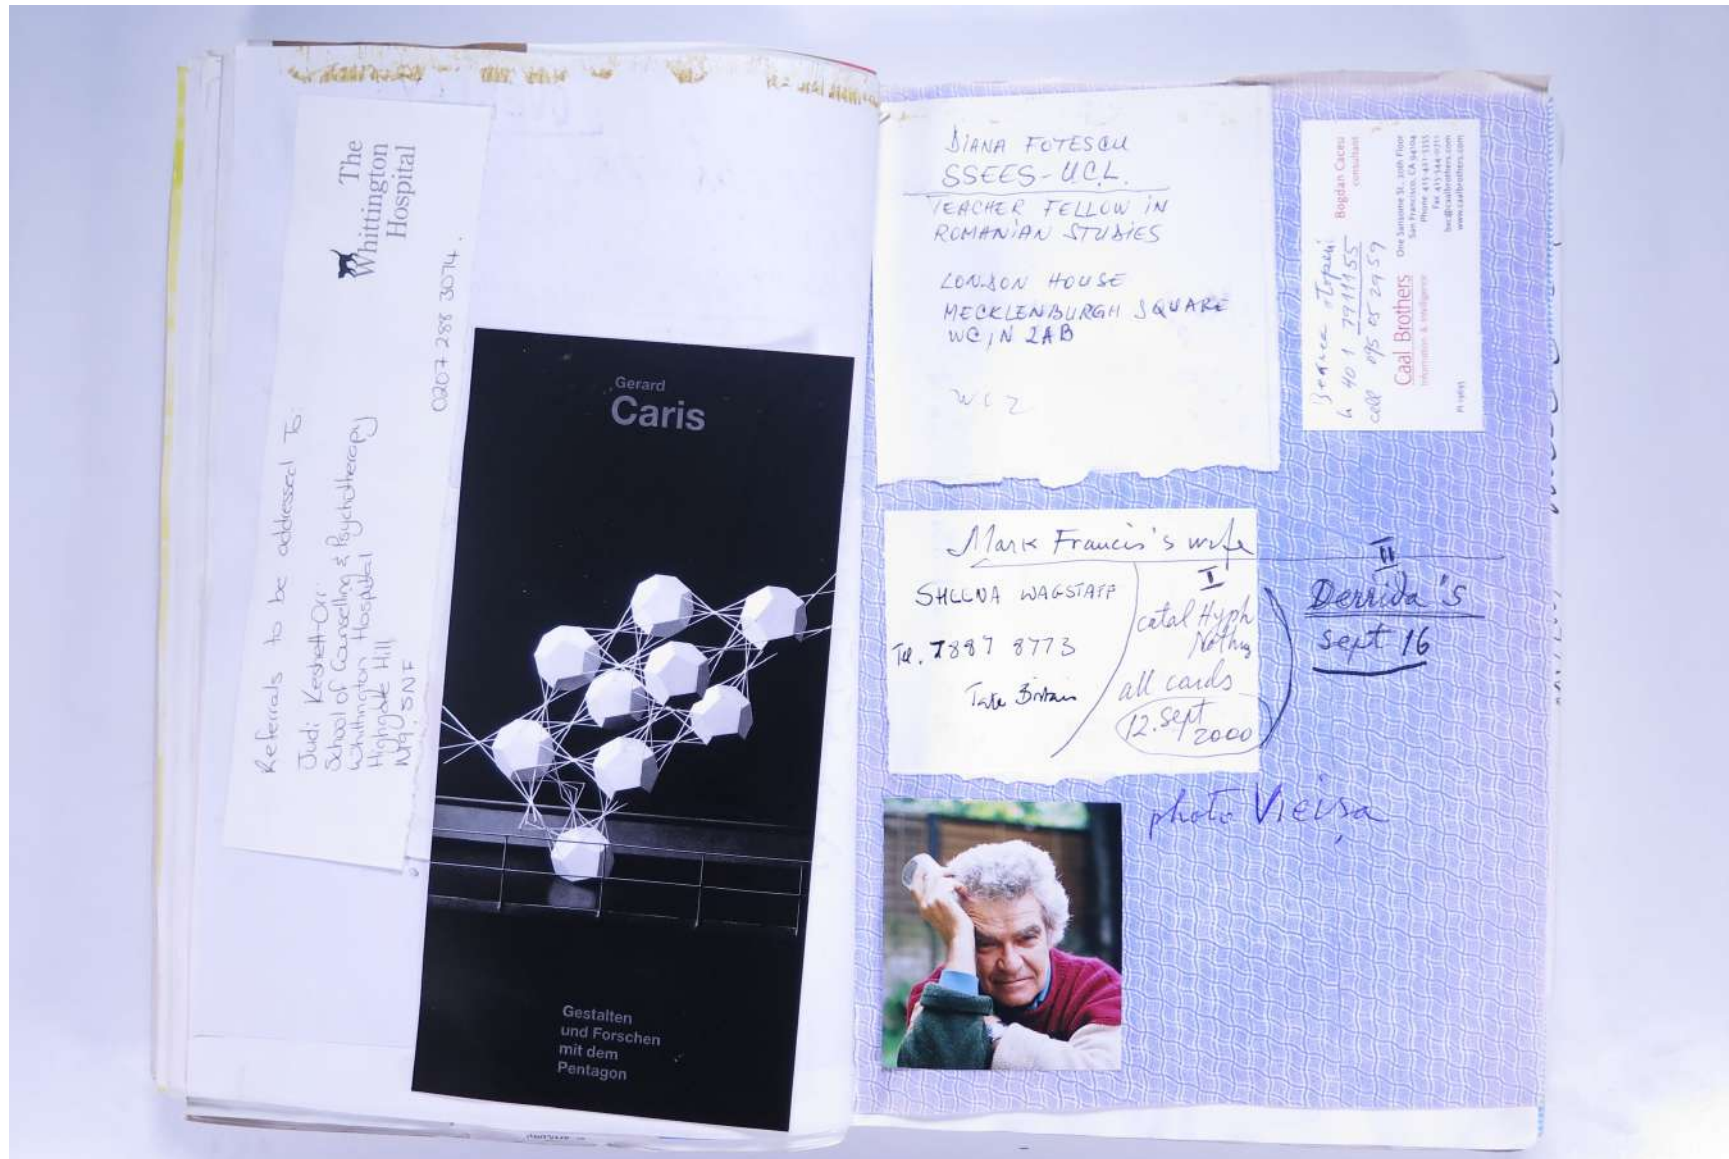 The
Whittington
Hospital
0207 288 3074.
Referrals to be addressed To:
Judi Keshet-Orr
School of Counselling & Psychotherapy
Whittington Hospital
Highgate Hill
N19. 5NF
Gerard
Caris
Gestalten
und Forschen
mit dem
Pentagon
DIANA FOTESCU
SSEES-U.C.L.
TEACHER FELLOW IN
ROMANIAN STUDIES
LONDON HOUSE
MECKLENBURGH SQUARE
WC1N 2AB
WC2
Bogdan Caceu
consultant
One Sansome St. 20th Floor
San Francisco, CA 94104
Phone 415-421-3355
Fax 415-544-0711
www.caalbrothers.com
Caal Brothers
Information & Intelligence
40 1 7911155
cell 095 05 29 59
Mark Francis's wife
SHEENA WAGSTAFF
Tel. 7887 8773
Tate Britain
I
catal Hyph
Nothing
all cards
12. Sept
2000
II
Derrida's
Sept 16
photo Vieişa